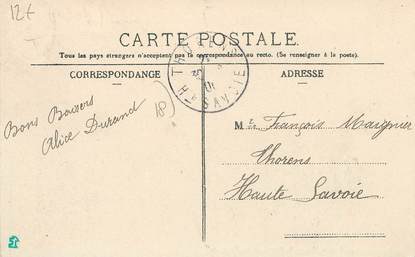 12€
CARTE POSTALE.
Tous les pays étrangers n'acceptent pas la correspondance au recto. (Se renseigner à la poste).
CORRESPONDANCE
ADRESSE
THORENS
HTE SAVOIE
Bons Baisers
Alice Durand
18)
M François Maignier
Thorens
Haute Savoie